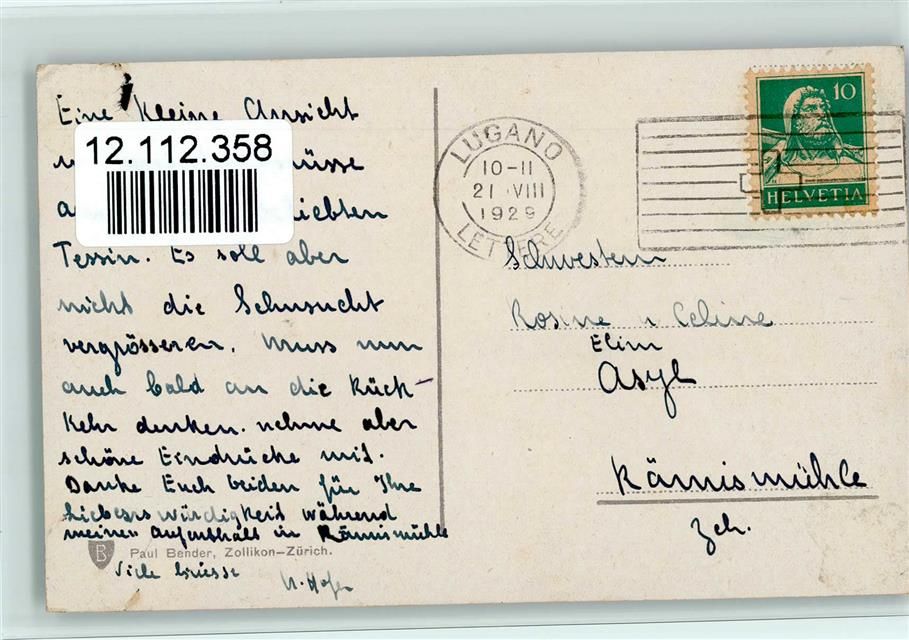 Eine kleine Ansicht
12.112.358
Tessin. Es soll aber
nicht die Sehnsucht
vergrösseren. Muss nun
auch bald an die Rück-
kehr denken. nehme aber
schöne Eindrücke mit.
Danke Euch beiden für Ihre
Liebenswürdigkeit während
meinen Aufenthalt in Rämismühle
B Paul Bender, Zollikon-Zürich.
Viele Grüsse
LUGANO
10-11
21 VIII
1929
LETTERE
10
HELVETIA
Schwestern
Rosine u Celine
Elim
Asyl
Rämismühle
Zch.